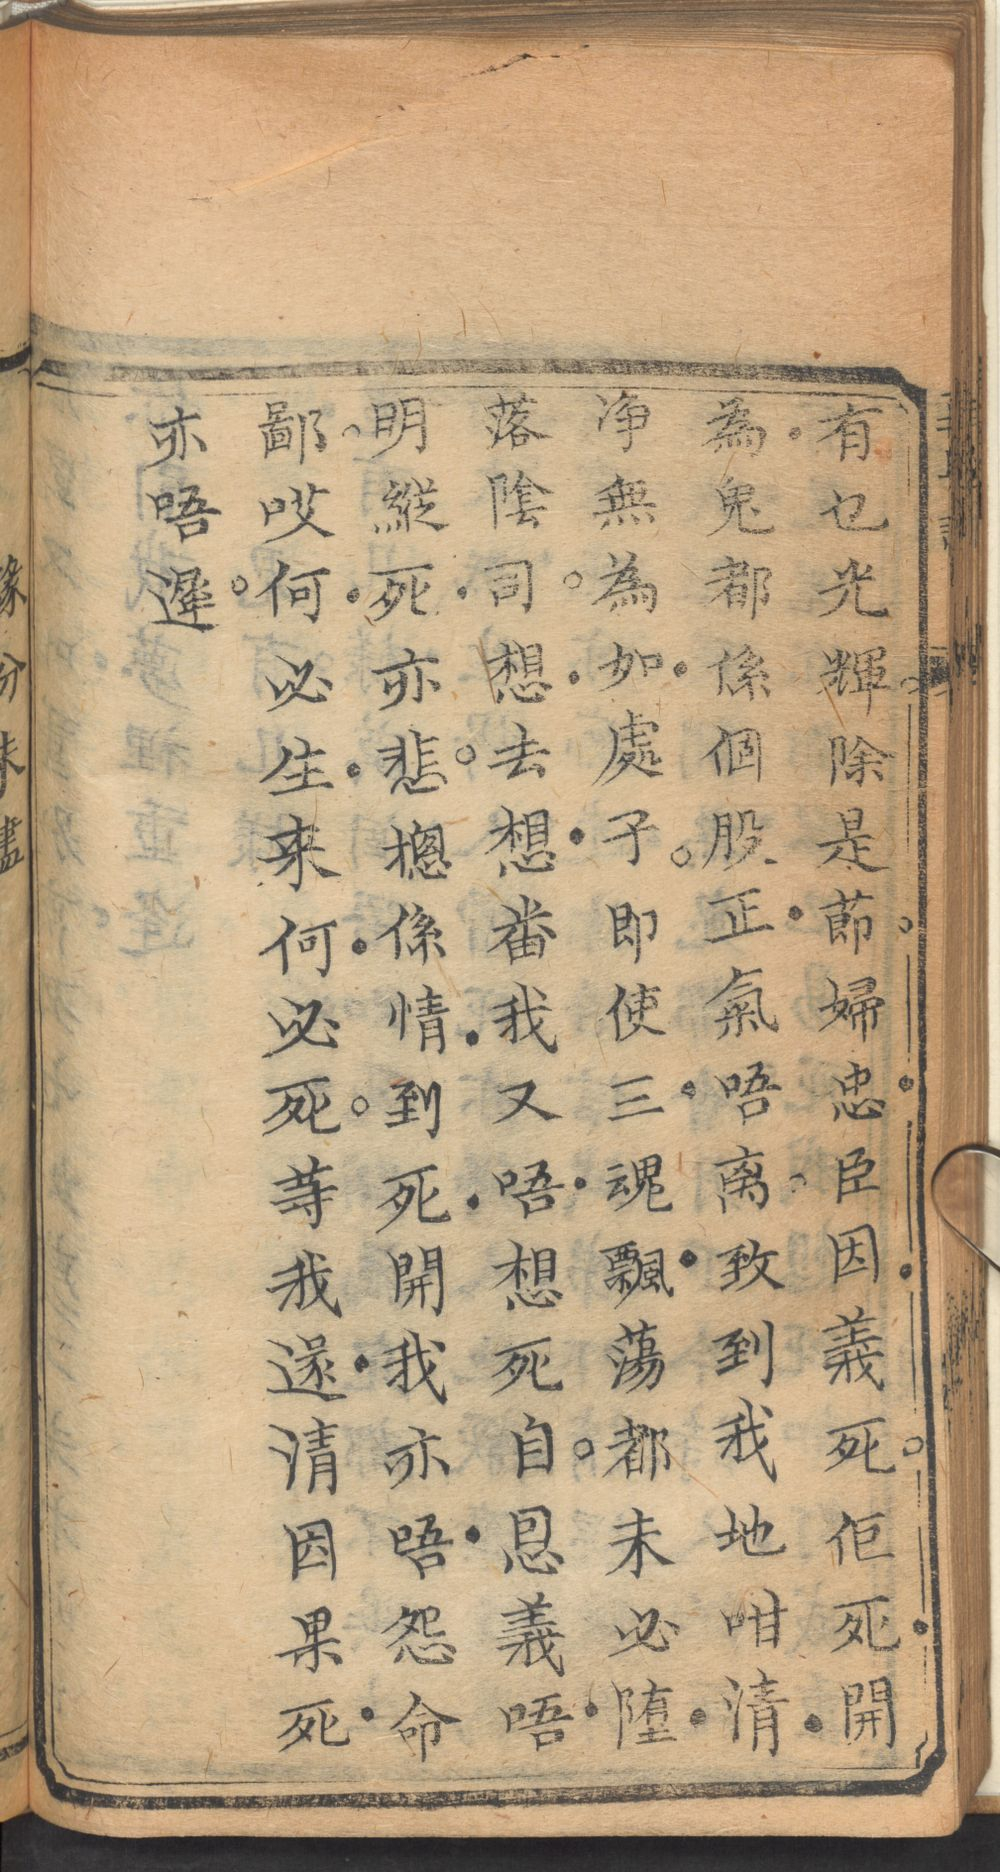 有乜光輝除是莭婦忠臣因義死佢死開
為鬼都係個股正氣唔离致到我地咁清
净無為如處子即使三魂飄蕩都未必堕
落陰司想去想番我又唔想死自恩義唔
明縱死亦悲摠係情到死開我亦唔怨命
鄙哎何必生来何必死䓁我遂清因果死
亦唔遲
緣分未盡